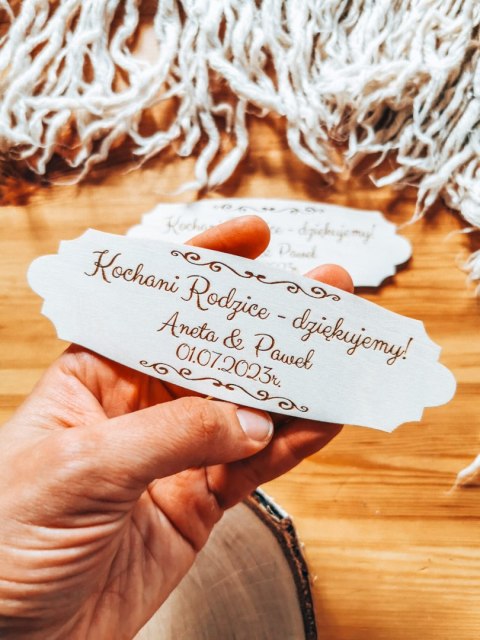 Kochani Rodzice - dziękujemy!
Aneta & Paweł
01.07.2023r.
Kochani Rodzice - dziękujemy!
& Paweł